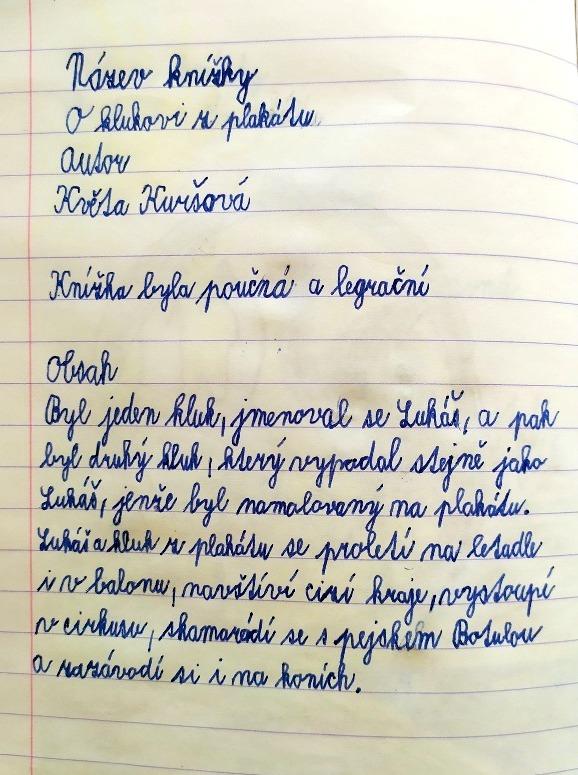 Název knížky
O klukovi z plakátu
Autor
Květa Kuršová
Knížka byla poučná a legrační
Obsah
Byl jeden kluk, jmenoval se Lukáš, a pak
byl druhý kluk, který vypadal stejně jako
Lukáš, jenže byl namalovaný na plakátu.
Lukáš a kluk z plakátu se proletí na letadle
i v balonu, navštíví cizí kraje, vystoupí
v cirkusu, skamarádí se s pejskem Botulou
a zazávodí si i na koních.